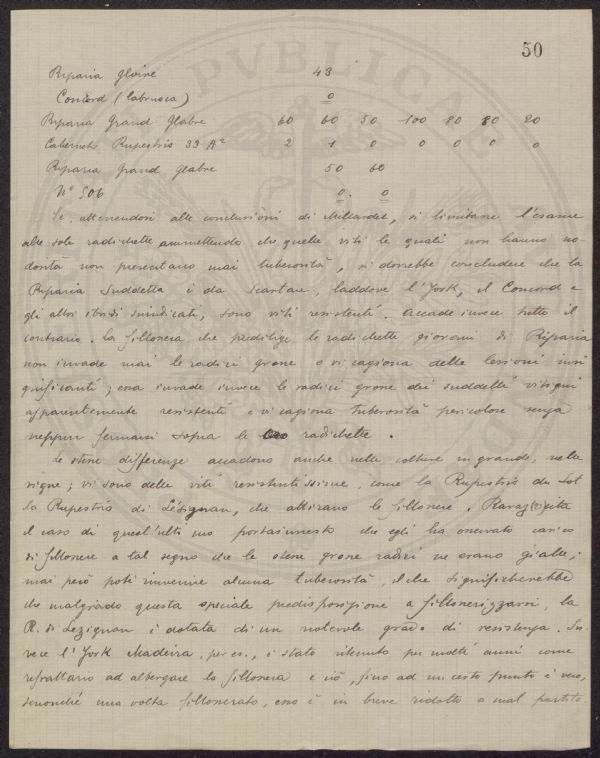 50
PUBLICAE
Riparia Gloire 43
Concord (labrusca) 0
Riparia Grand Glabre 60 60 50 100 80 80 20
Cabernet Rupestris 33 A² 2 1 0 0 0 0 0
Riparia Grand Glabre 50 60
N° 506 0. 0
Se, attenendosi alle conclusioni di Millardet, si limitasse l'esame
alle sole radichette ammettendo che quelle viti le quali non hanno no-
dosità non presentano mai tuberosità, si dovrebbe concludere che la
Riparia suddetta è da scartare, laddove l'York, il Concord e
gli altri ibridi suindicati, sono viti resistenti. Accade invece tutto il
contrario. La fillossera che predilige le radichette giovani di Riparia
non invade mai le radici grosse o vi cagiona delle lesioni insi
gnificanti; essa invade invece le radici grosse dei suddetti vitigni
apparentemente resistenti e vi cagiona tuberosità pericolose senza
neppur fermarsi sopra le radichette.
Le stesse differenze accadono anche nelle colture in grande, nelle
vigne; vi sono delle viti resistentissime, come la Rupestris du Lot
la Rupestris di Lézignan, che attirano le fillossere. Ravaz (1) cita
il caso di quest'ultimo portainnesto che egli ha osservato carico
di fillossere a tal segno che le stesse grosse radici ne erano gialle;
mai però poté rinvenire alcuna tuberosità, il che significherebbe
che malgrado questa speciale predisposizione a fillosserizzarsi, la
R. di Lezignan è dotata di un notevole grado di resistenza. In-
vece l'York Madeira, per es., è stato ritenuto per molti anni come
refrattario ad albergare la fillossera e ciò, fino ad un certo punto è vero,
senonché una volta fillosserato, esso è in breve ridotto a mal partito